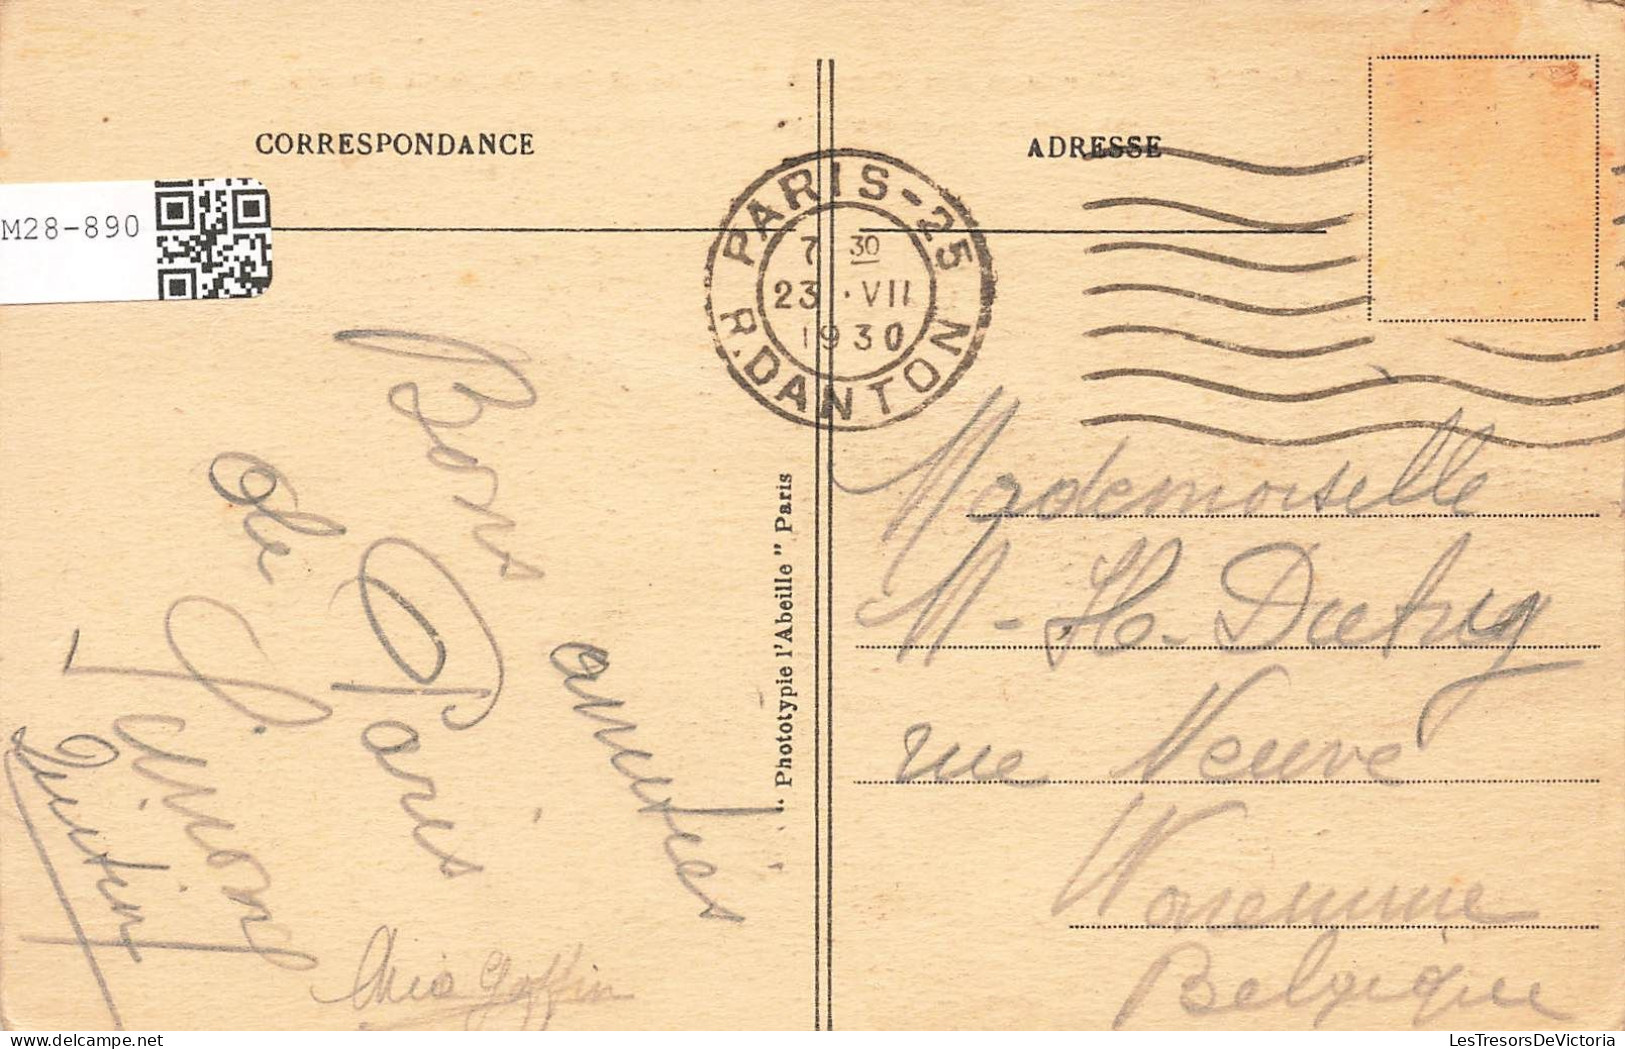 CORRESPONDANCE
ADRESSE
M28-890
PARIS-25
7 30
23 .VII
1930
R. DANTON
Bons amitiés
de Paris
Simone
Quintin
" Phototypie l'Abeille " Paris
Mademoiselle
M-H-
rue Neuve
Waremme
Belgique
LesTresorsDeVictoria